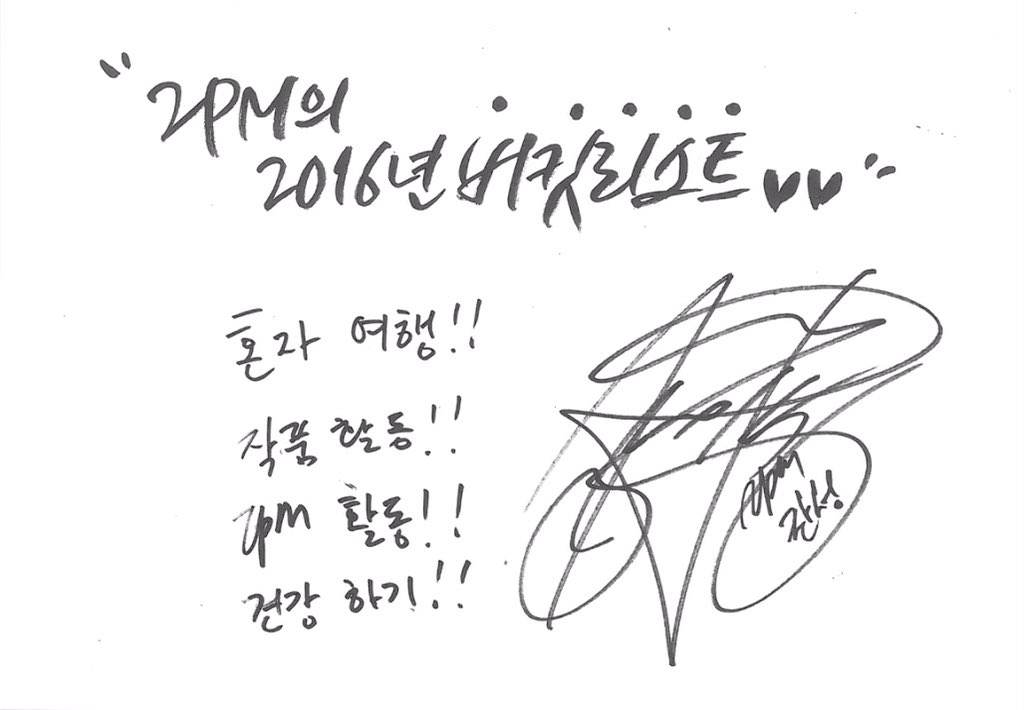 "2PM의
2016년 버킷리스트♥♥"
혼자 여행!!
작품 활동!!
2pm 활동!!
건강 하기!!
2pm
찬성